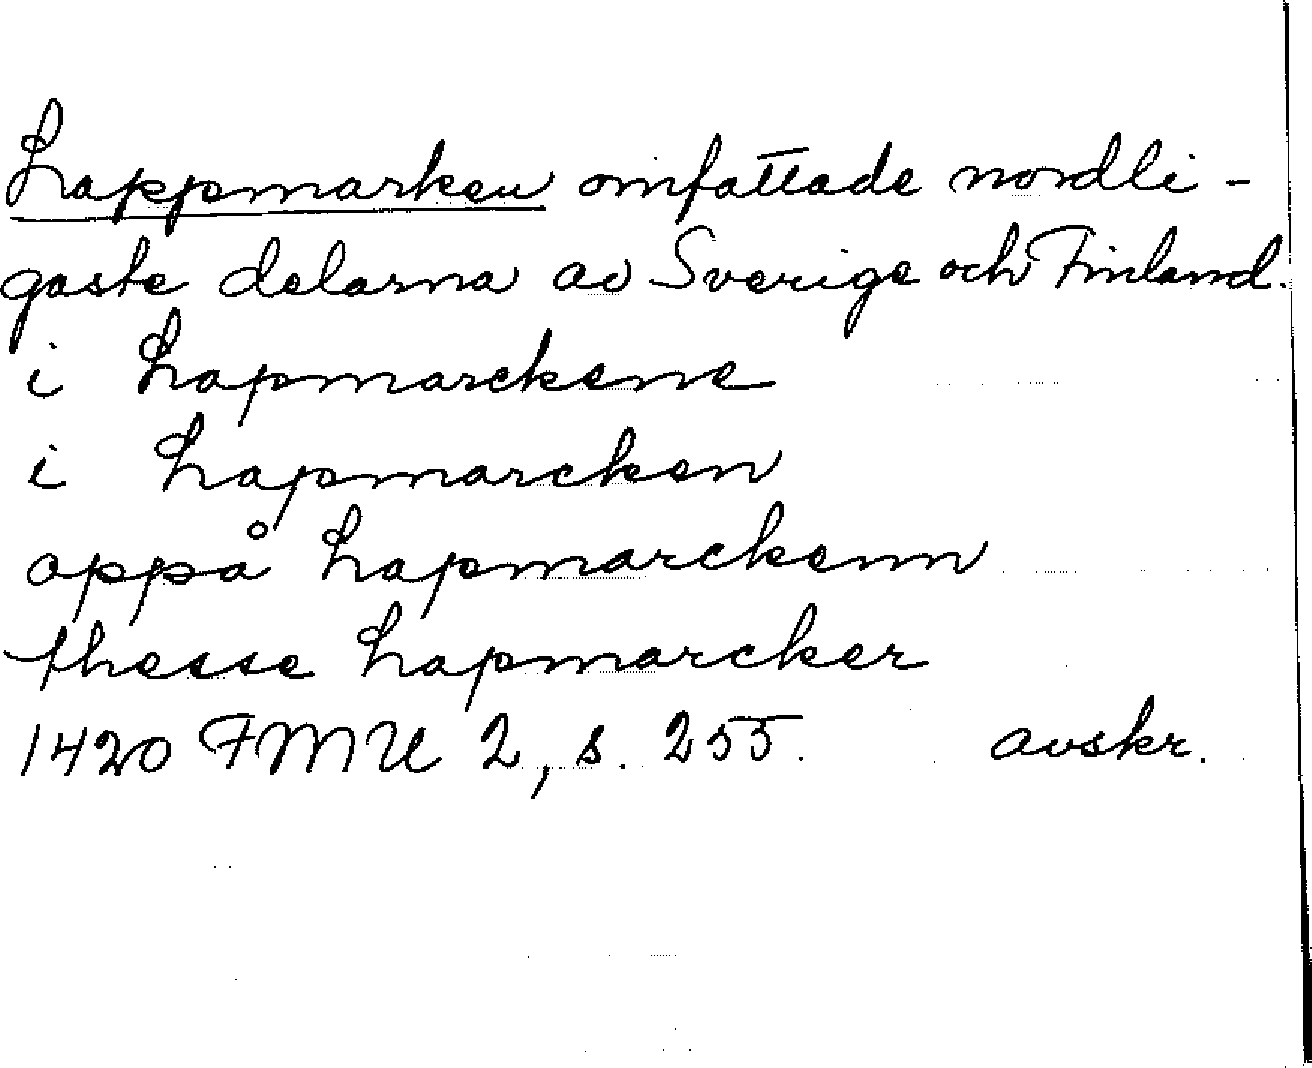 Lappmarken omfattade nordli-
gaste delarna av Sverige och Finland.
i Lapmarckene
i Lapmarcken
oppå Lapmarckenn
thesse Lapmarcker
1420 FMU 2, s. 255. avskr.